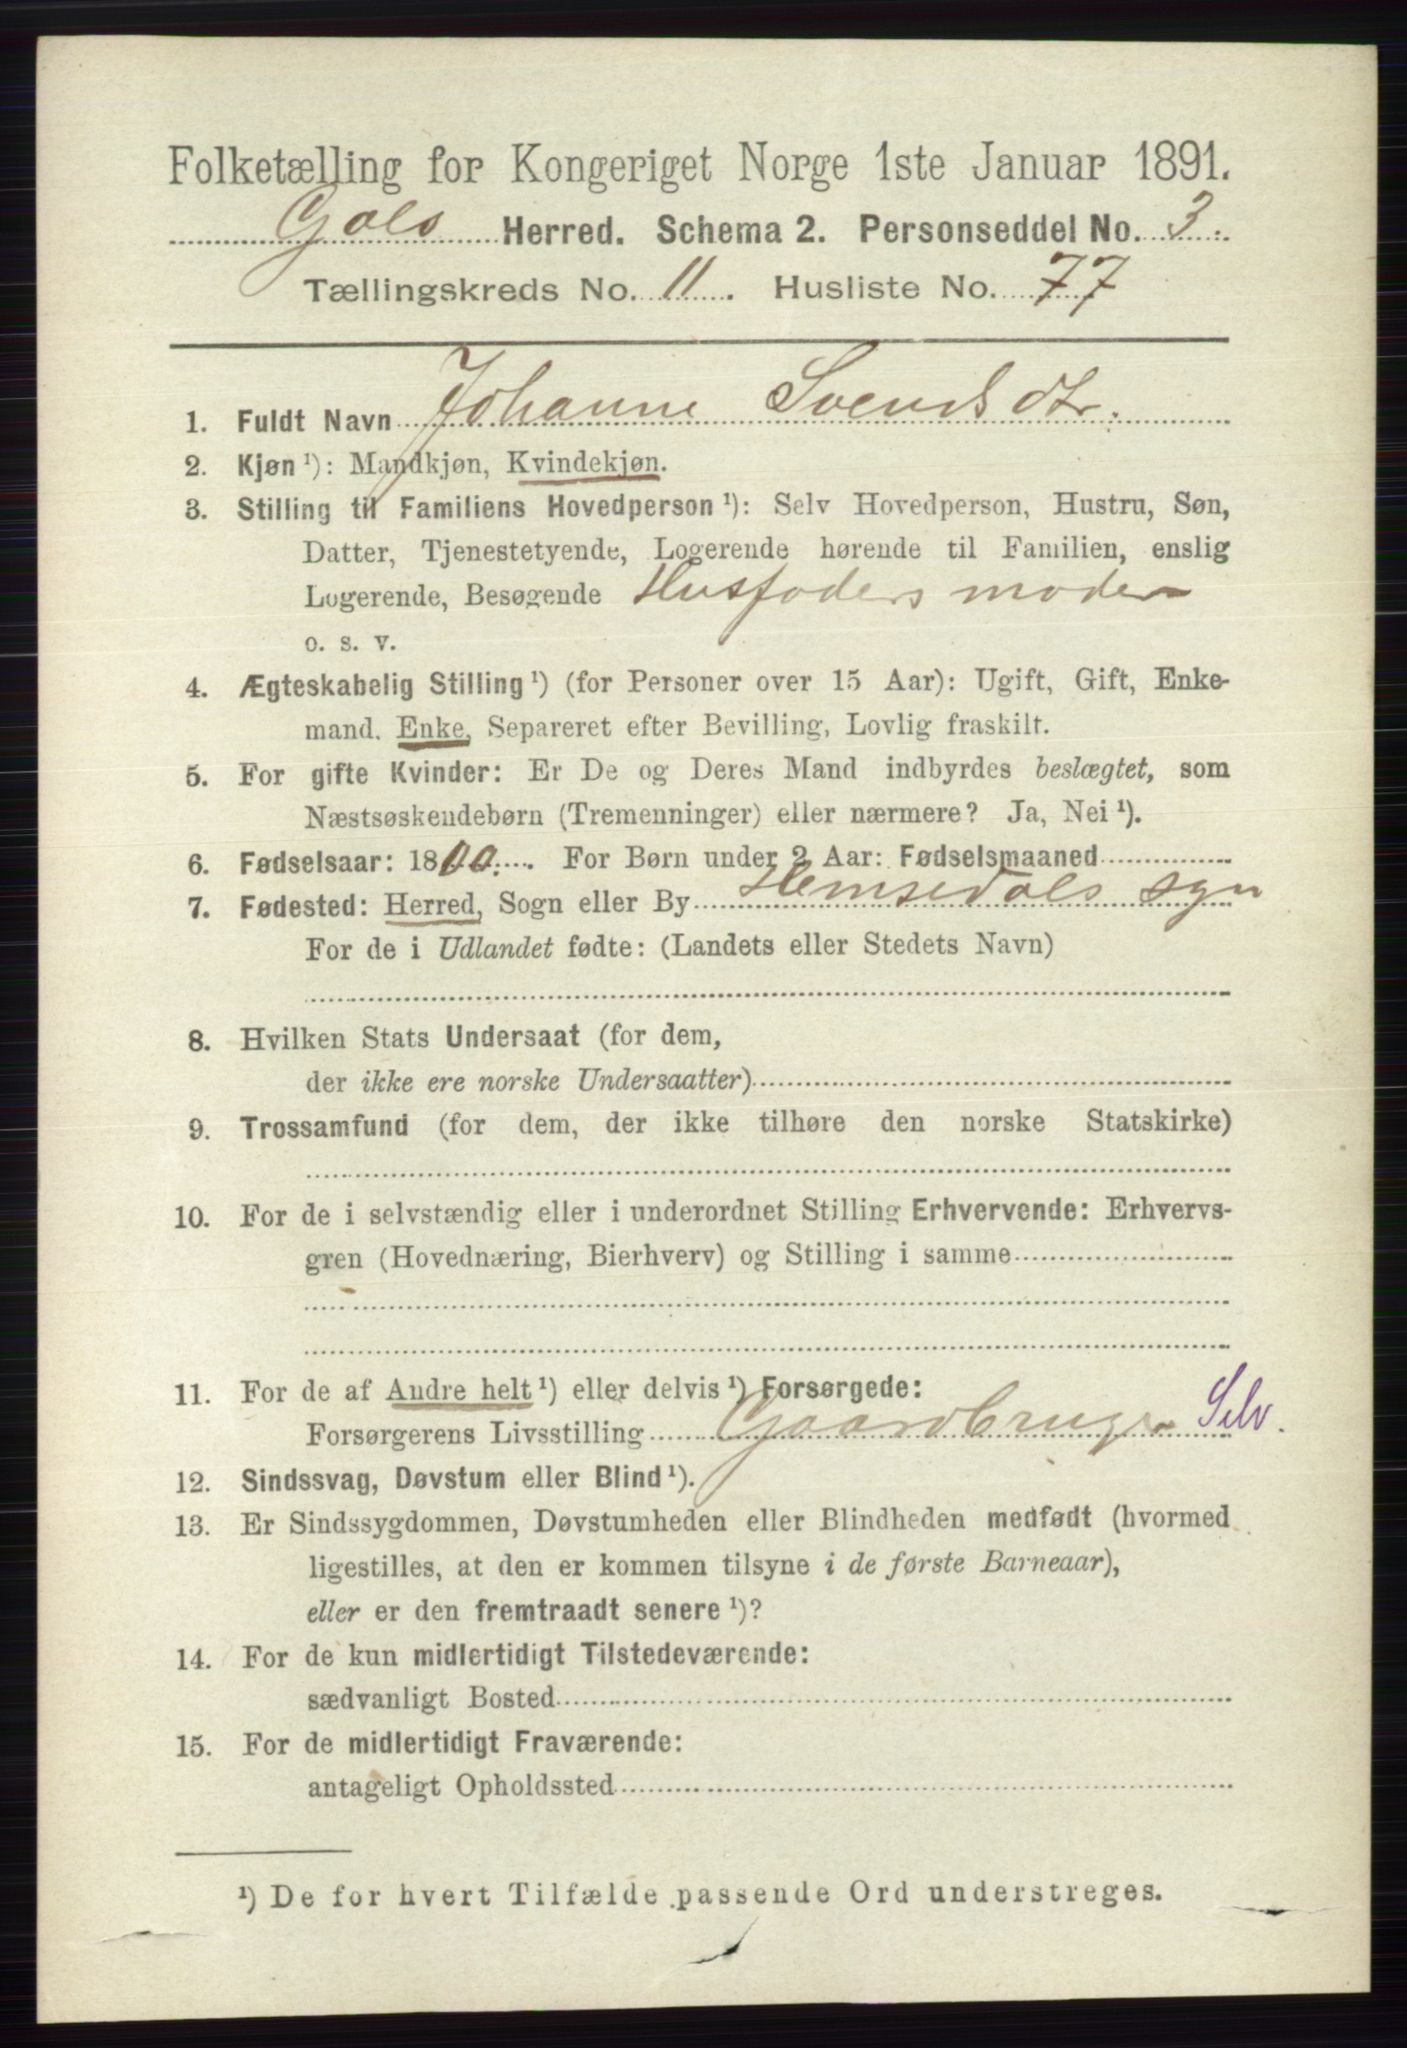 Folketælling for Kongeriget Norge 1ste Januar 1891.
Gols Herred. Schema 2. Personseddel No. 3.
Tællingskreds No. 11. Husliste No. 77
1. Fuldt Navn Johanne Svendsdtr.
2. Kjøn ¹): Mandkjøn, Kvindekjøn.
3. Stilling til Familiens Hovedperson ¹): Selv Hovedperson, Hustru, Søn,
Datter, Tjenestetyende, Logerende hørende til Familien, enslig
Logerende, Besøgende Husfaders moder
o. s. v.
4. Ægteskabelig Stilling ¹) (for Personer over 15 Aar): Ugift, Gift, Enke-
mand, Enke, Separeret efter Bevilling, Lovlig fraskilt.
5. For gifte Kvinder: Er De og Deres Mand indbyrdes beslægtet, som
Næstsøskendebørn (Tremenninger) eller nærmere? Ja, Nei ¹).
6. Fødselsaar: 1800. For Børn under 2 Aar: Fødselsmaaned
7. Fødested: Herred, Sogn eller By Hemsedals sgn
For de i Udlandet fødte: (Landets eller Stedets Navn)
8. Hvilken Stats Undersaat (for dem,
der ikke ere norske Undersaatter)
9. Trossamfund (for dem, der ikke tilhøre den norske Statskirke)
10. For de i selvstændig eller i underordnet Stilling Erhvervende: Erhvervs-
gren (Hovednæring, Bierhverv) og Stilling i samme
11. For de af Andre helt ¹) eller delvis ¹) Forsørgede:
Forsørgerens Livsstilling Gaardbruger Selv.
12. Sindssvag, Døvstum eller Blind ¹).
13. Er Sindssygdommen, Døvstumheden eller Blindheden medfødt (hvormed
ligestilles, at den er kommen tilsyne i de første Barneaar),
eller er den fremtraadt senere ¹)?
14. For de kun midlertidigt Tilstedeværende:
sædvanligt Bosted
15. For de midlertidigt Fraværende:
antageligt Opholdssted
¹) De for hvert Tilfælde passende Ord understreges.